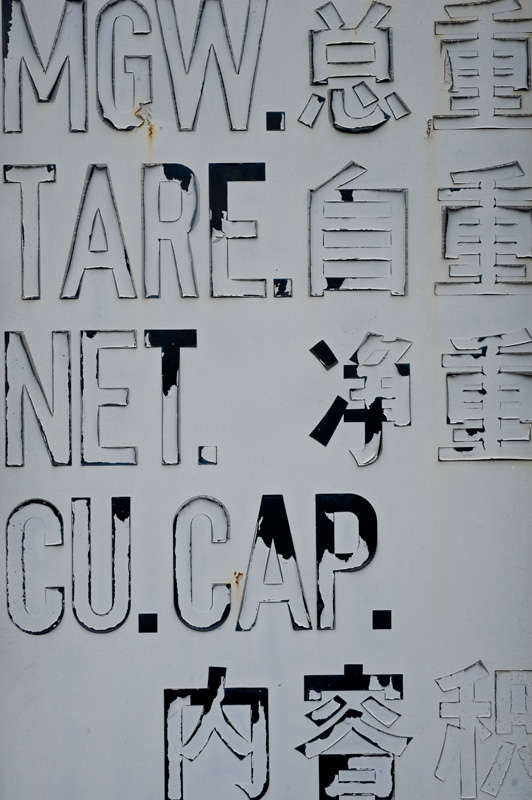 MGW. 总重
TARE. 自重
NET. 净重
CU.CAP.
内容积